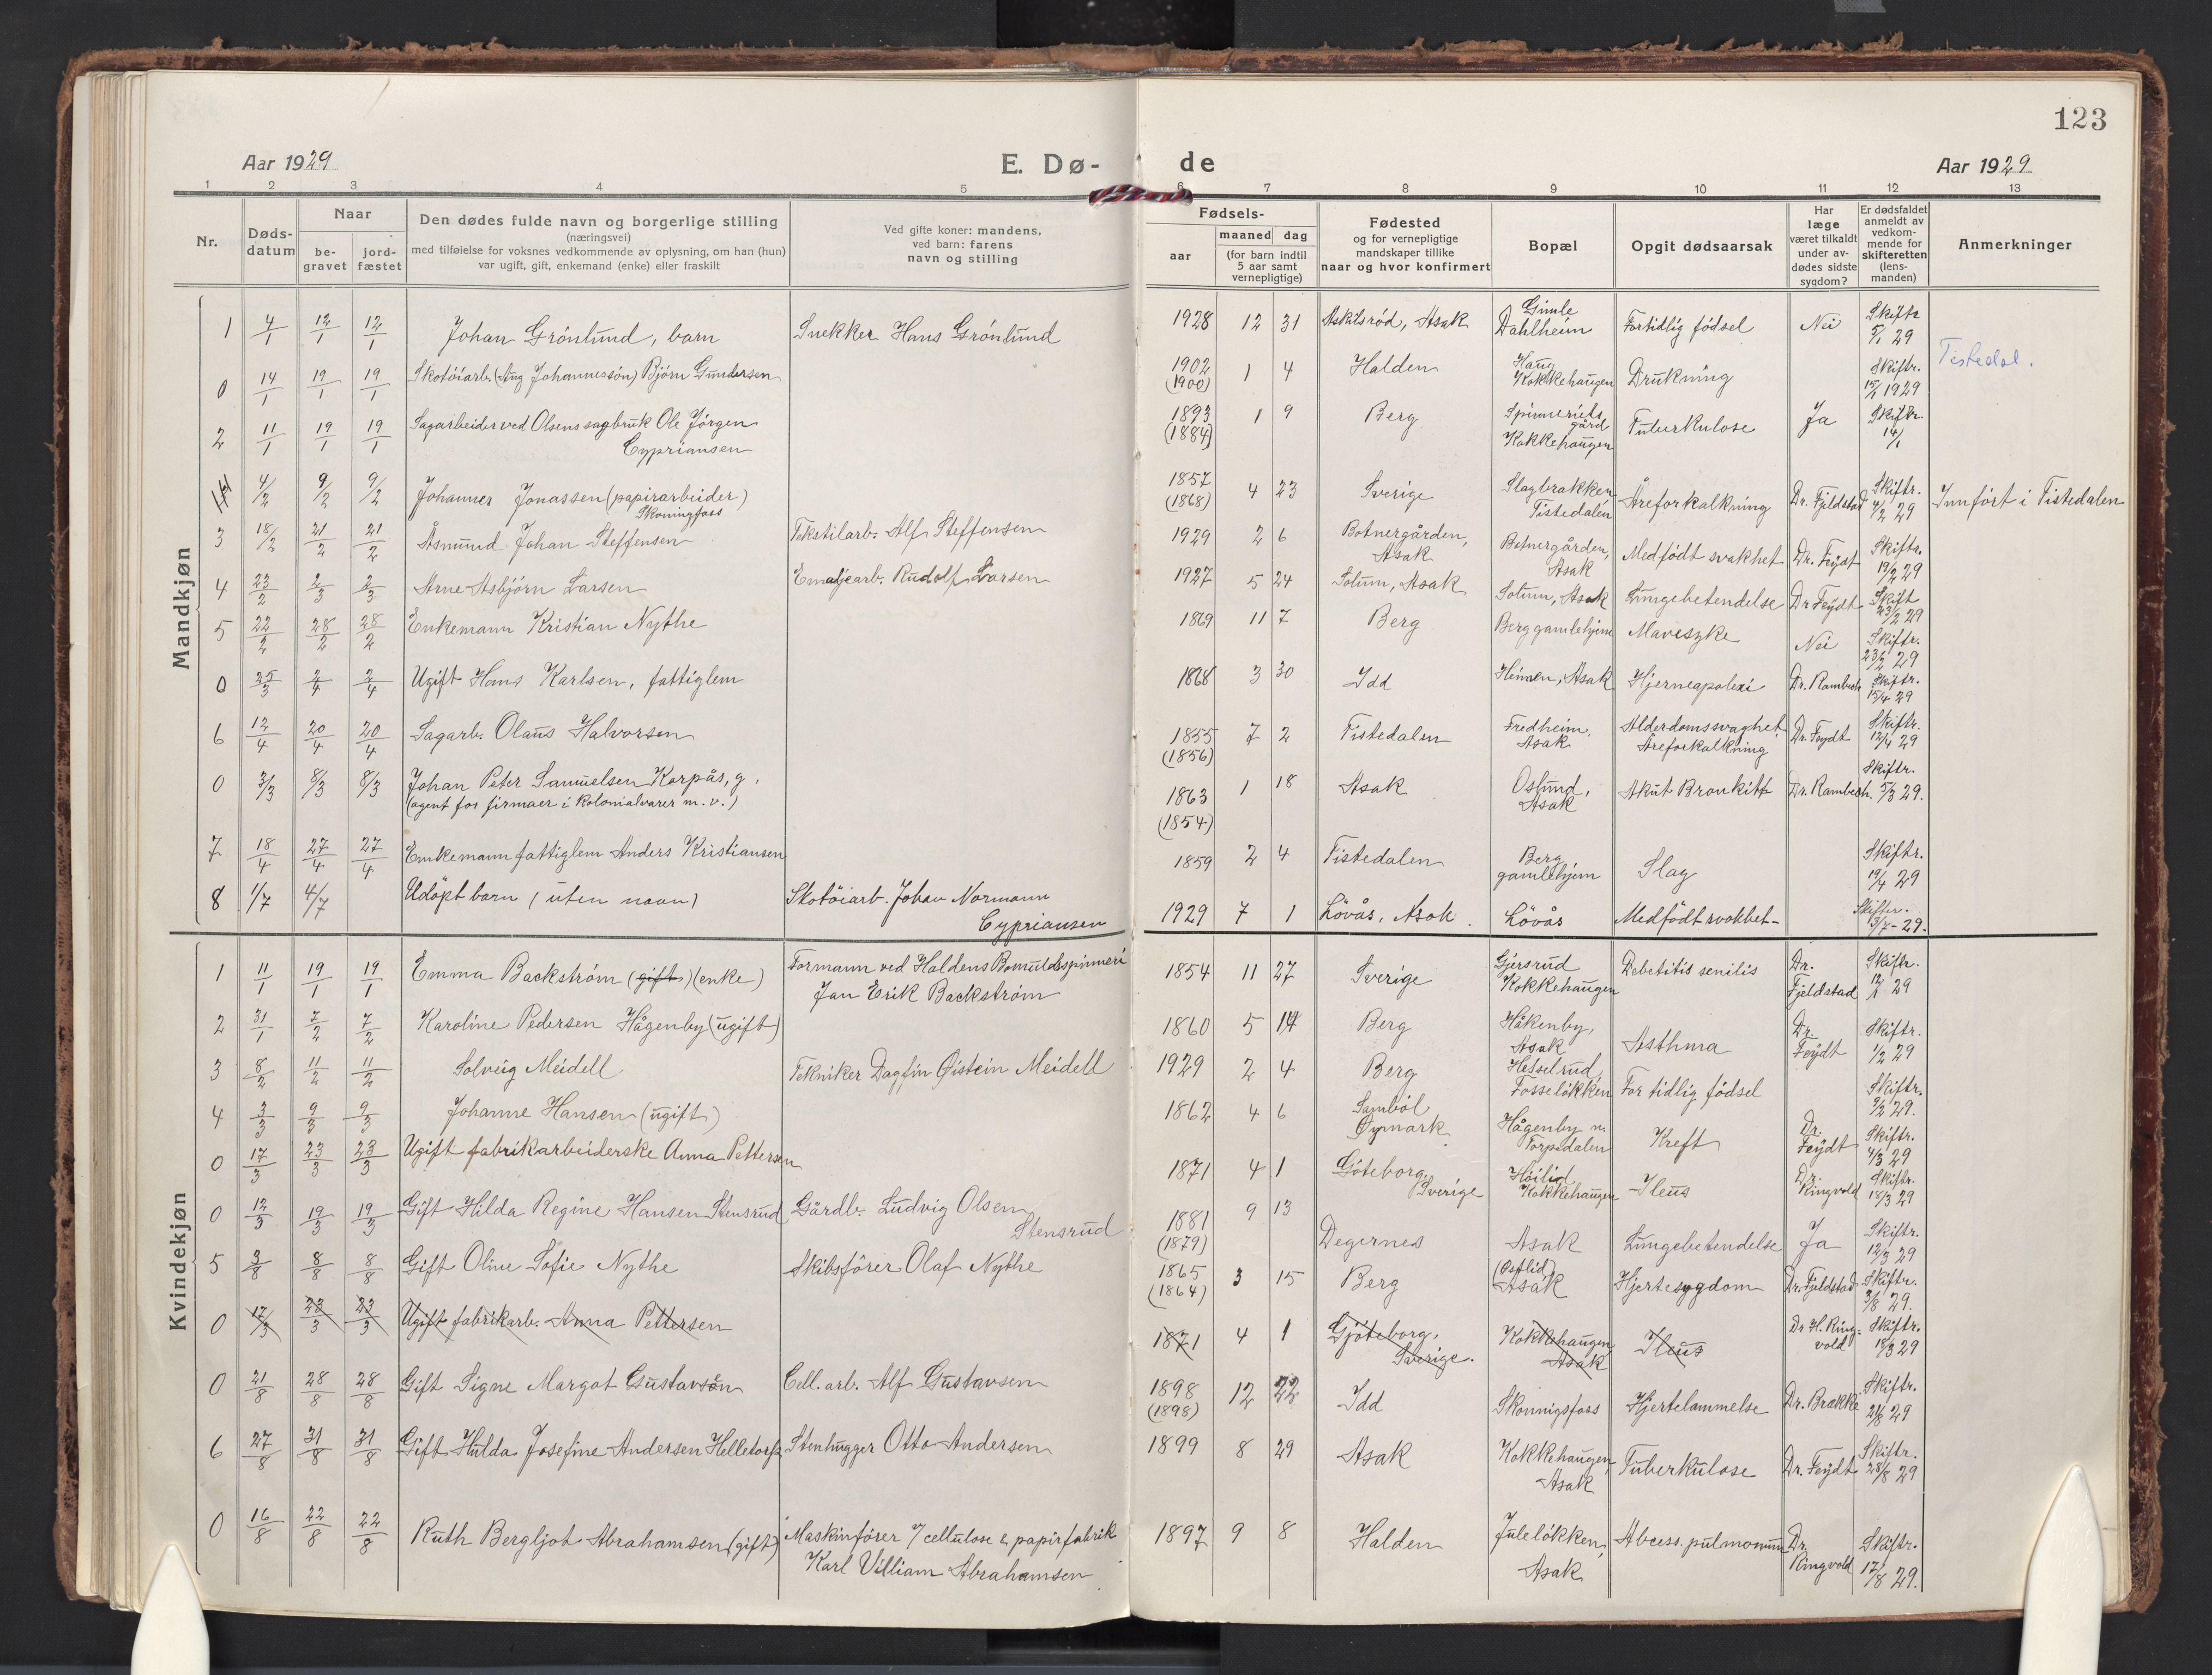 123
Aar 1929 E. Dø- de Aar 1929
1 2 3 4 5 6 7 8 9 10 11 12 13
Nr.
Døds-
datum
Naar
be-
gravet
jord-
fæstet
Den dødes fulde navn og borgerlige stilling
(næringsvei)
med tilføielse for voksnes vedkommende av oplysning, om han (hun)
var ugift, gift, enkemand (enke) eller fraskilt
Ved gifte koner: mandens,
ved barn: farens
navn og stilling
Fødsels-
aar
maaned dag
(for barn indtil
5 aar samt
vernepligtige)
Fødested
og for vernepligtige
mandskaper tillike
naar og hvor konfirmert
Bopæl
Opgit dødsaarsak
Har
læge
været tilkaldt
under av-
dødes sidste
sygdom?
Er dødsfaldet
anmeldt av
vedkom-
mende for
skifteretten
(lens-
manden)
Anmerkninger
Mandkjøn
1 4/1 12/1 12/1 Johan Grönlund, barn Snekker Hans Grönlund 1928 12 31 Askilsröd, Asak Gimle Dahlheim Fortidlig födsel Nei Skiftr 5/1 29
0 14/1 19/1 19/1 Skotöiarb. (Aug Johannessön) Björn Gundersen 1902 (1900) 1 4 Halden Haug Kokkehaugen Drukning Skiftr. 15/1 1929 Tistedal.
2 11/1 19/1 19/1 Sagarbeider ved Olsens sagbruk Ole Jörgen
Cypriansen 1893 (1884) 1 9 Berg Spinneriets gård Kokkehaugen Tuberkulose Ja Skiftr. 14/1
4/2 9/2 9/2 Johannes Jonassen (papirarbeider)
Skoningfoss 1857 (1868) 4 23 Sverige Slagbrakken Tistedalen Åreforkalkning Dr. Fjeldstad Skiftr. 4/2 29 Innfört i Tistedalen
3 18/2 21/2 21/2 Asmund Johan Steffensen Tekstilarb. Alf Steffensen 1929 2 6 Botnergården, Asak Botnergården, Asak Medfödt svakhet Dr. Feydt Skiftr. 19/2 29
4 23/2 2/3 2/3 Arne Asbjörn Larsen Emaljearb. Rudolf Larsen 1927 5 24 Solum, Asak Solum, Asak Lungebetendelse Dr Feydt Skift 23/2 29
5 22/2 28/2 28/2 Enkemann Kristian Nythe 1869 11 7 Berg Berg gamlehjem Mavesyke Nei Skiftr. 23/2 29
0 25/3 2/4 2/4 Ugift Hans Karlsen, fattiglem 1868 3 30 Idd Heinen, Asak Hjerneapolexi Dr. Rambech Skiftr. 15/4 29
6 12/4 20/4 20/4 Sagarb. Olaus Halvorsen 1855 (1856) 7 2 Tistedalen Fredheim, Asak Alderdomssvaghet Åreforkalkning Dr. Feydt Skiftr. 12/4 29
0 3/3 8/3 8/3 Johan Peter Samuelsen Korpås, g.
(agent for firmaer i kolonialvarer m. v.) 1863 (1854) 1 18 Asak Oslund, Asak Akut Bronkitt Dr. Rambech. Skiftr. 5/3 29.
7 18/4 27/4 27/4 Emkemann fattiglem Anders Kristiansen 1859 2 4 Tistedalen Berg gamlehjem Slag Skiftr. 19/4 29
8 1/7 4/7 Udöpt barn (uten navn) Skotöiarb. Johan Normann
Cypriansen 1929 7 1 Lövås, Asak. Lövås Medfödt svakhet- Skiftr. 3/7-29.
Kvindekjøn
1 11/1 19/1 19/1 Emma Backström (gift) (enke) Formann ved Haldens Bomuldsspinneri
Jan Erik Backström 1854 11 27 Sverige Gjersrud Kokkehaugen Debetitis senilis Dr. Fjeldstad Skiftr. 12/1 29
2 31/1 7/2 7/2 Karoline Pedersen Hågenby (ugift) 1860 5 14 Berg Håkenby, Asak Asthma Dr. Feydt Skiftr. 1/2 29
3 8/2 11/2 11/2 Solveig Meidell Tekniker Dagfin Øistein Meidell 1929 2 4 Berg Hesselrud, Fosselökken For tidlig födsel Skiftr. 9/2 29.
4 3/3 9/3 9/3 Johanne Hansen (ugift) 1862 4 6 Samböl Øymark. Hågenby m. Torpedalen Kreft Dr. Feydt Skiftr. 4/3 29
0 17/3 23/3 23/3 Ugift fabrikarbeiderske Anna Pettersen 1871 4 1 Göteborg, Sverige Höilid Kokkehaugen Ileus Dr. Ringvold Skiftr. 18/3 29
0 12/3 19/3 19/3 Gift Hilda Regine Hansen Stensrud Gårdb. Ludvig Olsen
Stensrud 1881 (1879) 9 13 Degernes Asak Lungebetendelse Ja Skiftr. 12/3 29
5 3/8 8/8 8/8 Gift Oline Sofie Nythe Skibsförer Olaf Nythe 1865 (1864) 3 15 Berg (Østlid) Asak Hjertesygdom Dr. Fjeldstad Skiftr. 3/8 29.
0 17/3 23/3 23/3 Ugift fabrikarb. Anna Pettersen 1871 4 1 Gjöteborg, Sverige. Kokkehaugen Asak Ileus Dr H. Ring- vold Skiftr. 18/3 29
0 21/8 28/8 28/8 Gift Signe Margot Gustavsen Cell. arb. Alf Gustavsen 1898 (1898) 12 22 Idd Skonnigsfoss Hjertelammelse Dr. Brække Skiftr. 21/8 29
6 27/8 31/8 31/8 Gift Hulda Josefine Andersen Helletorp Stenhugger Otto Andersen 1899 8 29 Asak Kokkehaugen, Asak Tuberkulose Dr. Feydt Skiftr. 28/8 29
0 16/8 22/8 22/8 Ruth Bergljot Abrahamsen (gift) Maskinförer 7 cellulose & papirfabrik
Karl Villiam Abrahamsen 1897 9 8 Halden Julelökken, Asak Abcess. pulmonum Dr. Ringvold Skiftr. 17/8 29.